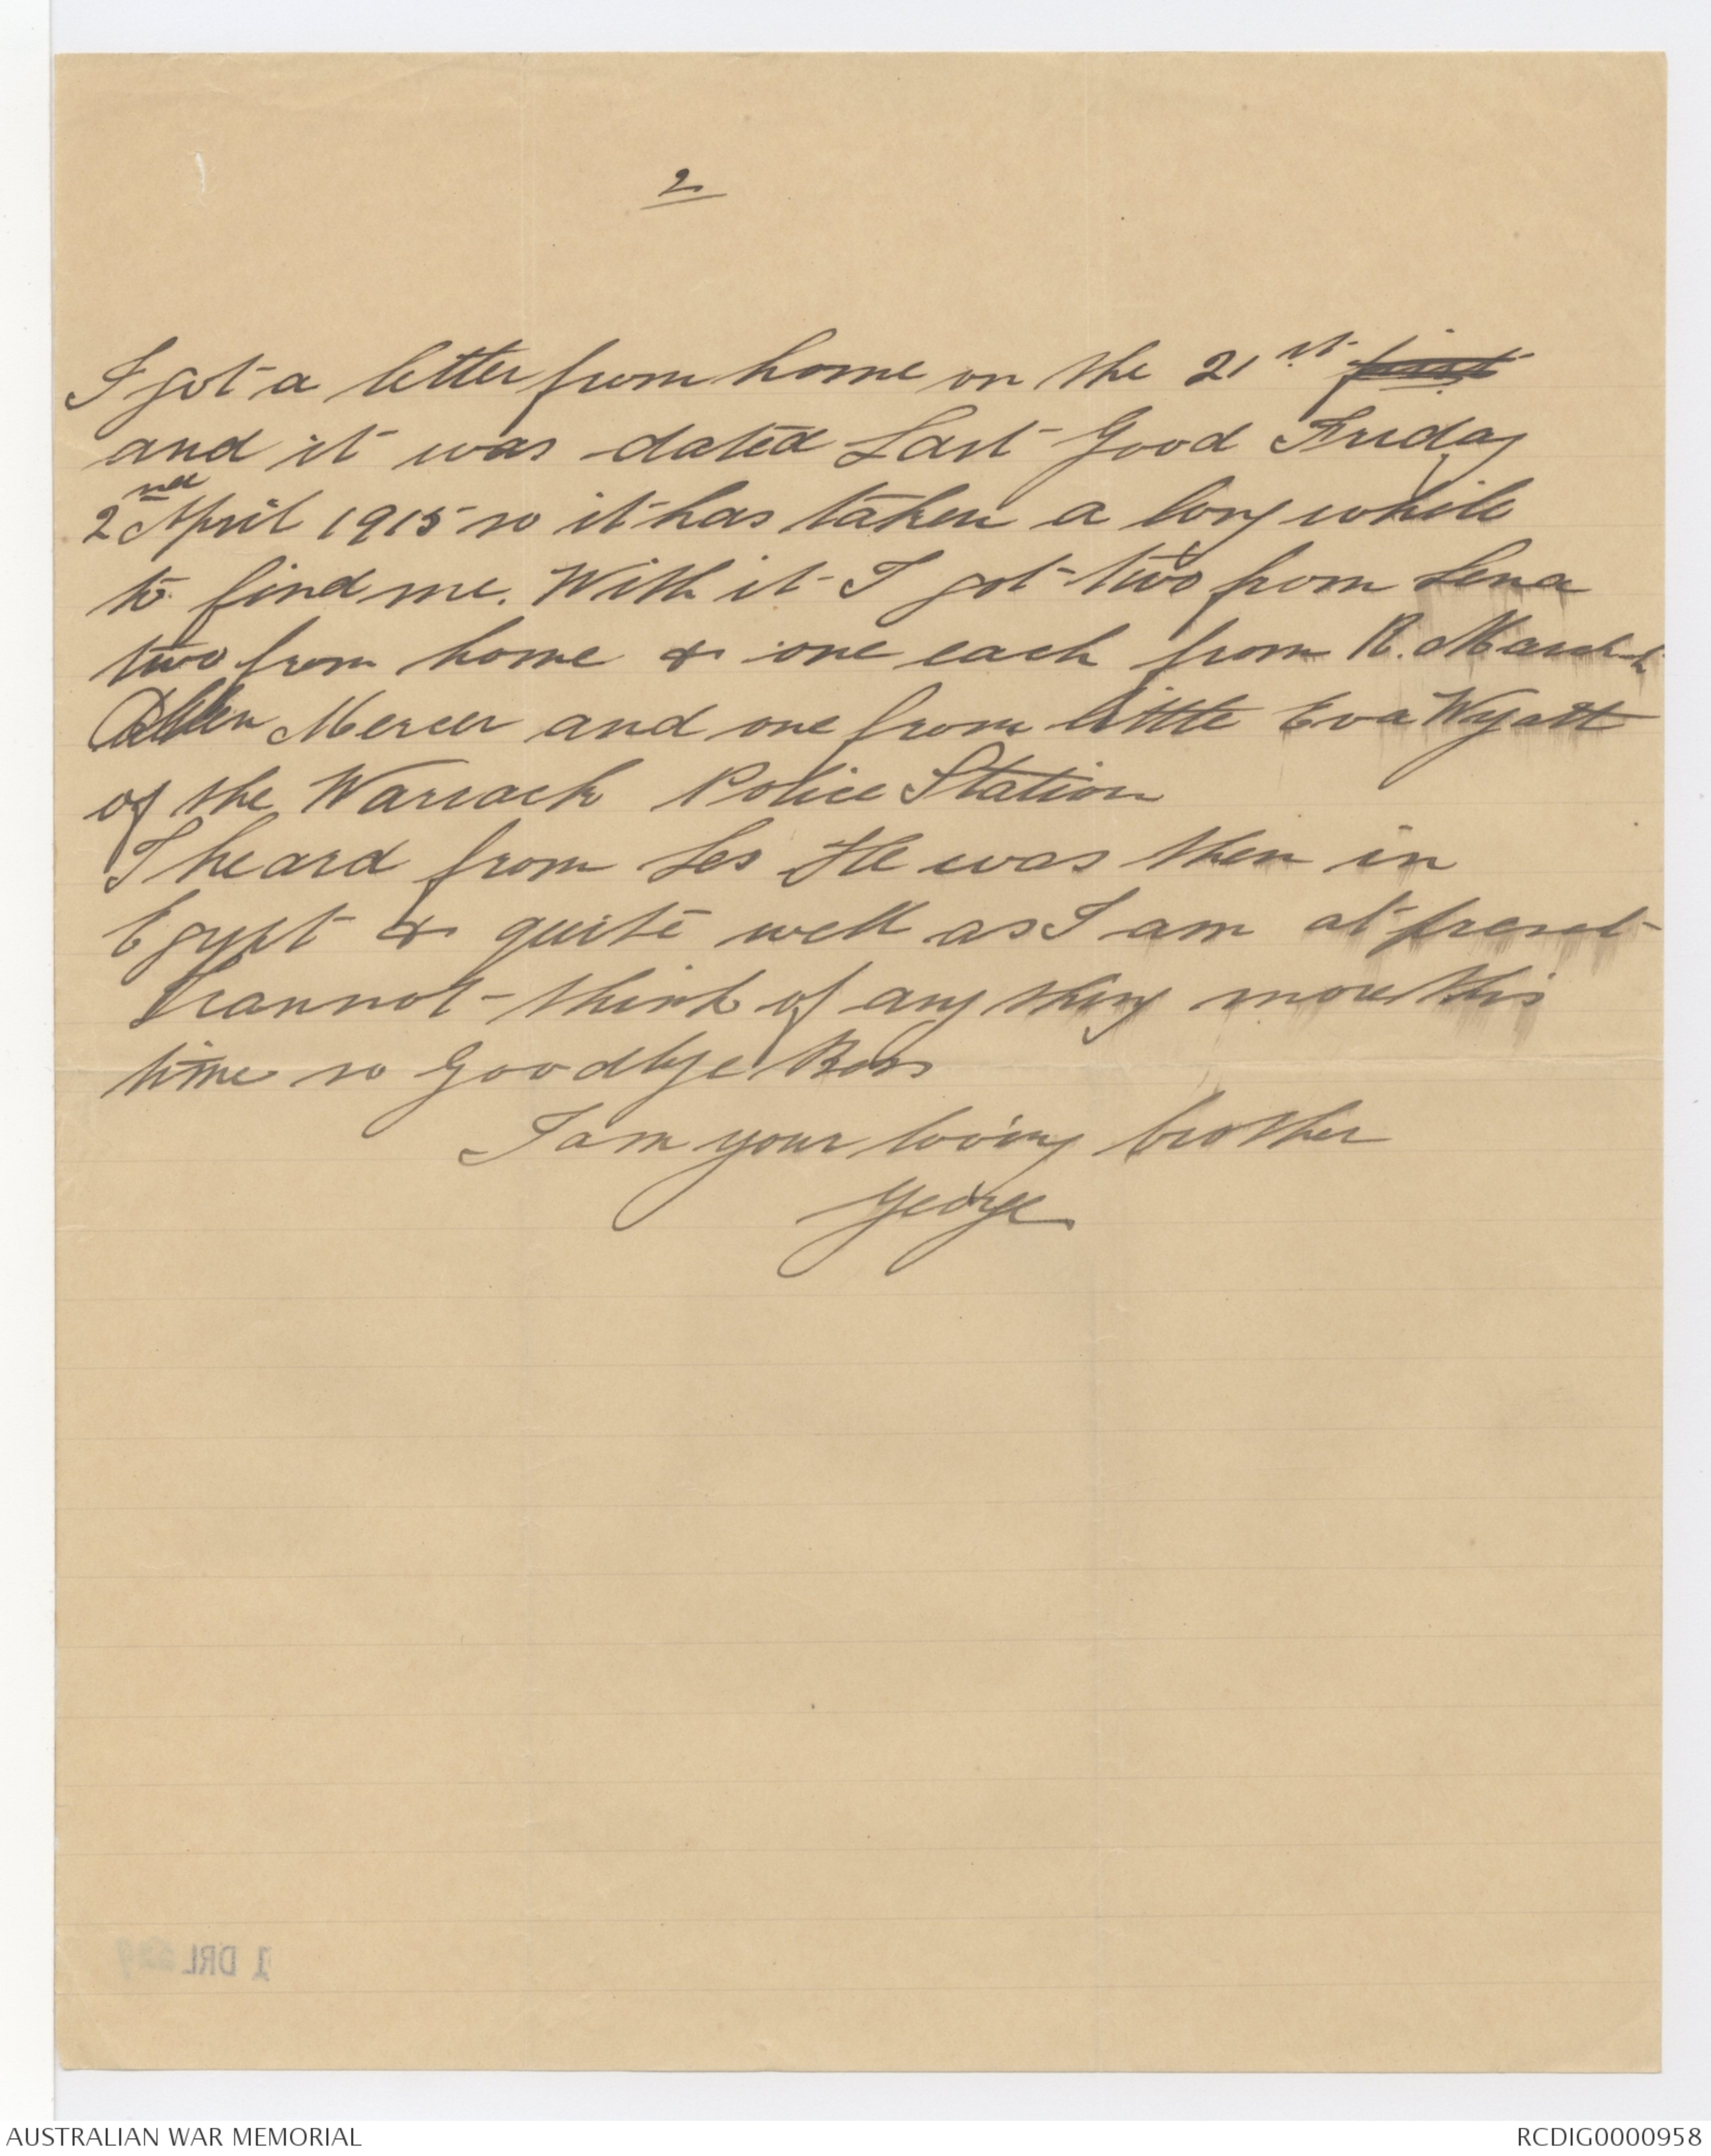 2
I got a letter from home on the 21st. first
and it was dated Last Good Friday
2nd April 1915 so it has taken a long while
to find me. With it I got two from Lena
two from home & one each from R. March
Mercer and one from little Eva Wyatt
of the Warrack Police Station
I heard from Les He was then in
Egypt & quite well as I am at present
I cannot think of any thing more this
time so Goodbye
I am your loving brother
George
1 DRL
AUSTRALIAN WAR MEMORIAL
RCDIG0000958